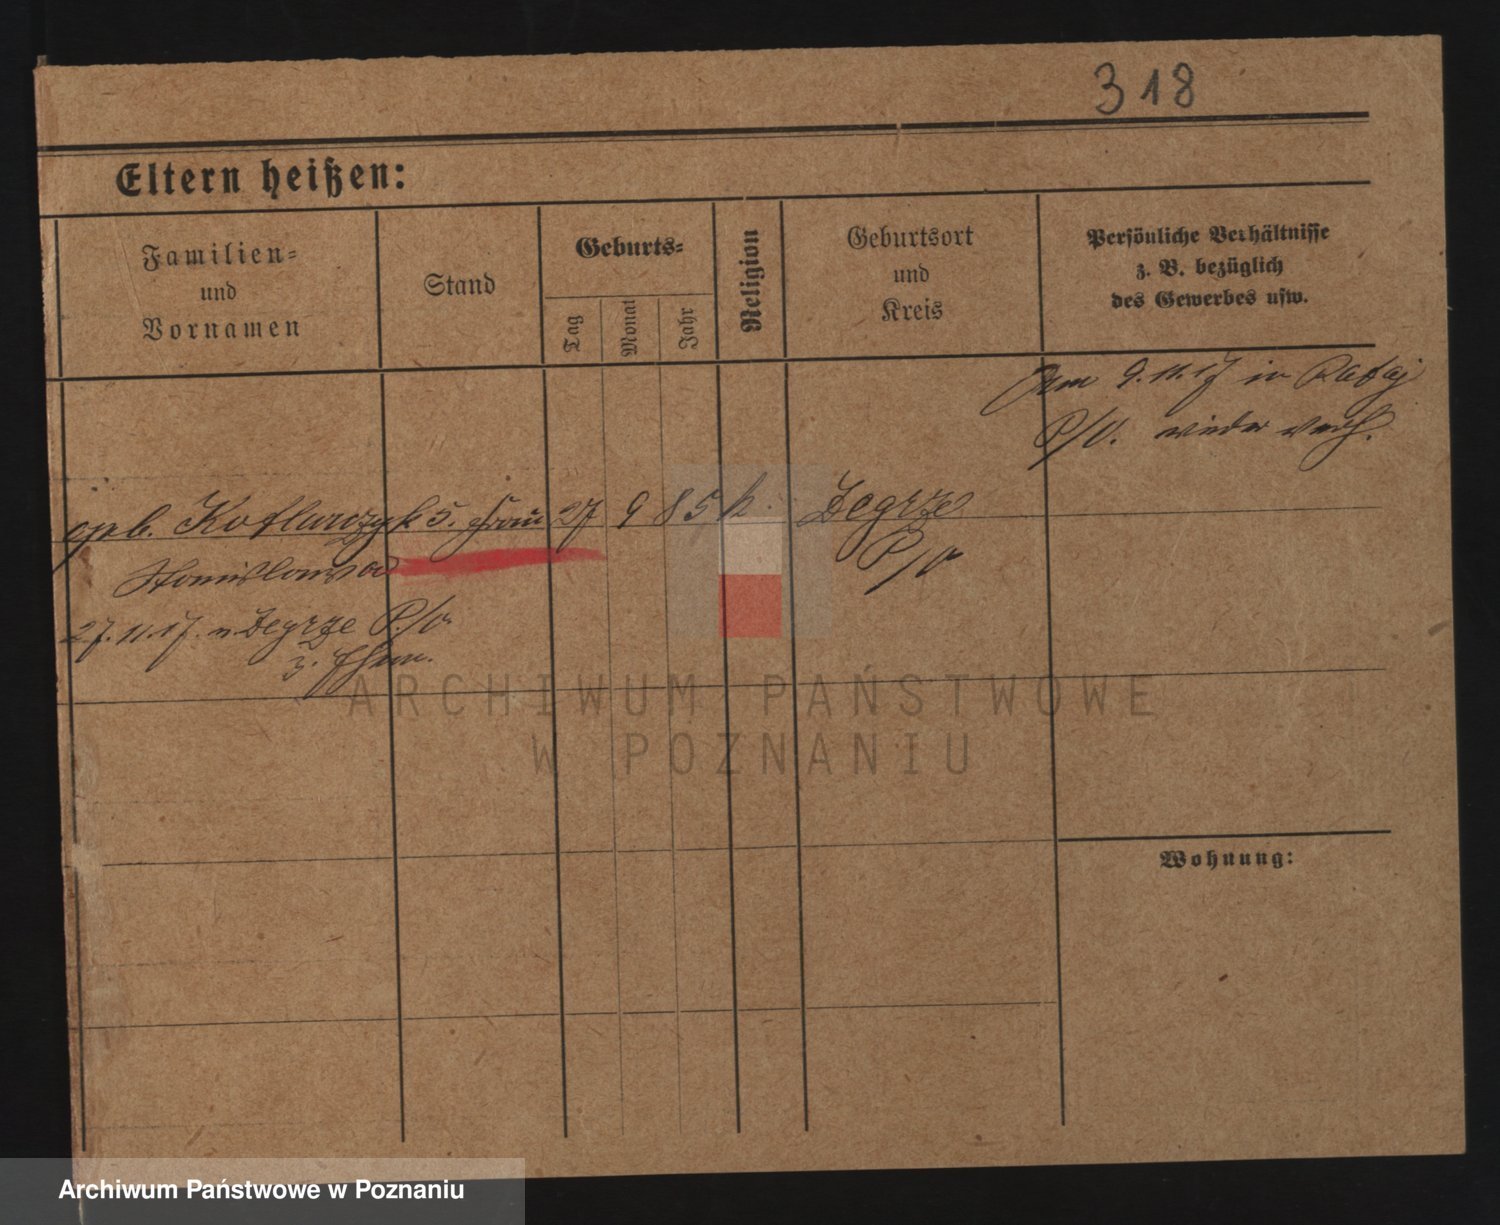 318
Eltern heißen:
Familien=
und
Vornamen
Stand
Geburts=
Tag
Monat
Jahr
Religion
Geburtsort
und
Kreis
Persönliche Verhältnisse
z. B. bezüglich
des Gewerbes usw.
Am 9.11.17 in Rataj
P/O. wieder verh.
geb. Kotlarczyk
Frau
27
9
85
k.
Zegrze
P/O
Stanislawa
27.11.17. n. Zegrze P./O.
z. Ehem.
ARCHIWUM PAŃSTWOWE
W POZNANIU
Wohnung:
Archiwum Państwowe w Poznaniu